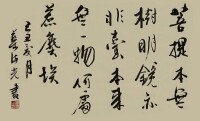 菩提本無
樹明鏡亦
非臺本来
無一物何處
惹塵埃
己丑